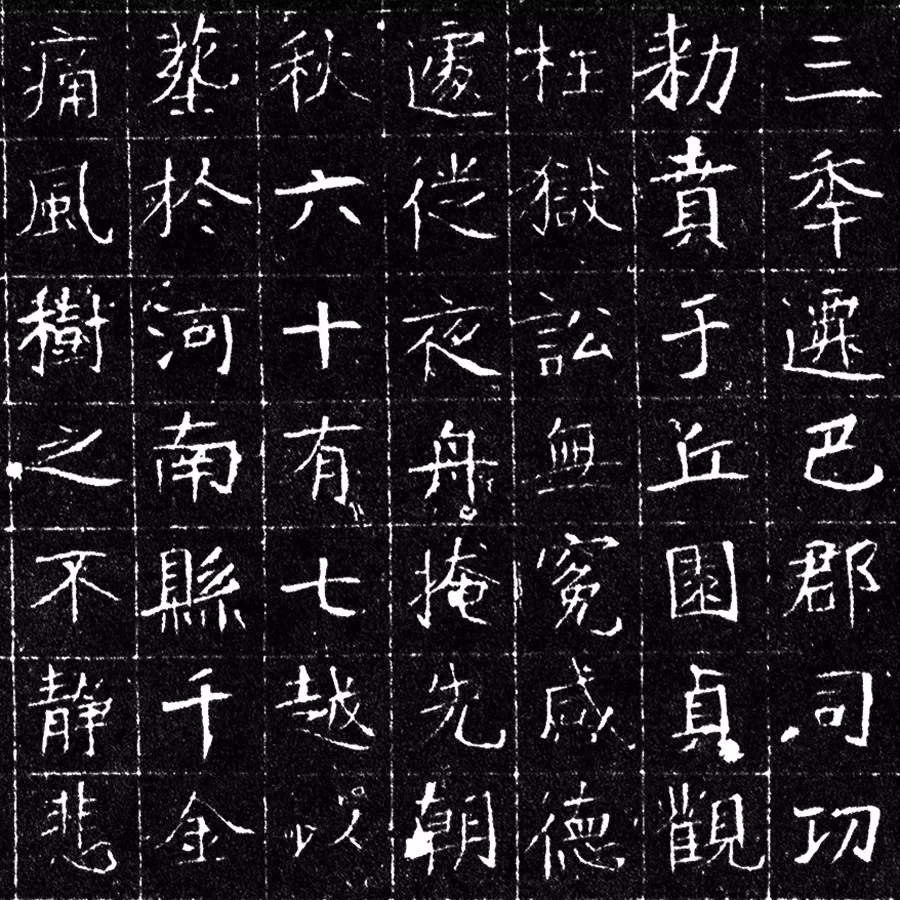 三秊遷巴郡司功
勑賁于丘園貞觀
枉獄訟無冤咸德
遽從夜舟掩先朝
秋六十有七越以
葬於河南縣千金
痛風樹之不靜悲